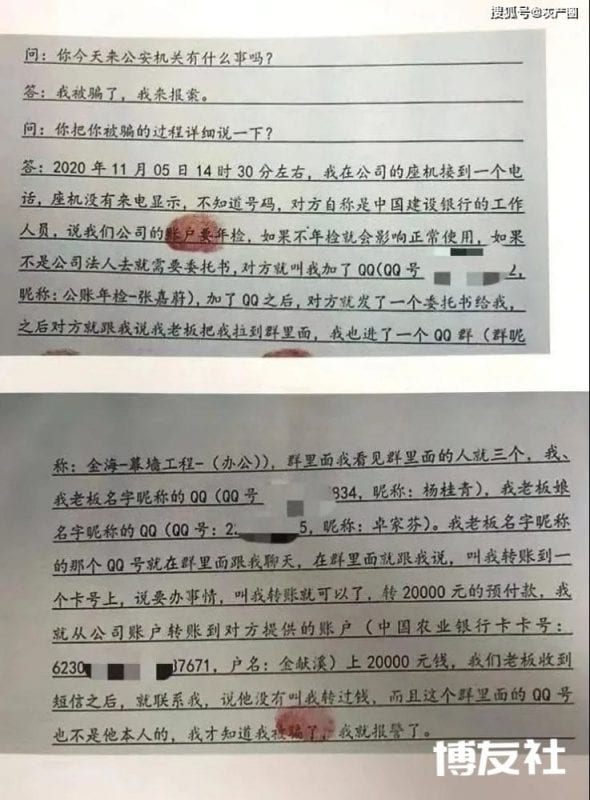 搜狐号@灰产圈
问：你今天来公安机关有什么事吗？
答：我被骗了，我来报案。
问：你把你被骗的过程详细说一下？
答：2020 年 11 月 05 日 14 时 30 分左右，我在公司的座机接到一个电
话，座机没有来电显示，不知道号码，对方自称是中国建设银行的工作
人员，说我们公司的账户要年检，如果不年检就会影响正常使用，如果
不是公司法人去就需要委托书，对方就叫我加了 QQ(QQ 号 2，
昵称：公账年检-张嘉蔚)，加了 QQ 之后，对方就发了一个委托书给我，
之后对方就跟我说我老板把我拉到群里面，我也进了一个 QQ 群（群昵
称：金海-幕墙工程-（办公）），群里面我看见群里面的人就三个，我、
我老板名字昵称的 QQ（QQ 号 834，昵称：杨桂青），我老板娘
名字昵称的 QQ（QQ 号：2 5，昵称：卓家芬）。我老板名字昵称
的那个 QQ 号就在群里面跟我聊天，在群里面就跟我说，叫我转账到一
个卡号上，说要办事情，叫我转账就可以了，转 20000 元的预付款，我
就从公司账户转账到对方提供的账户（中国农业银行卡卡号：
6230 37671，户名：金献溪）上 20000 元钱，我们老板收到
短信之后，就联系我，说他没有叫我转过钱，而且这个群里面的 QQ 号
也不是他本人的，我才知道我被骗了，我就报警了。
博友社